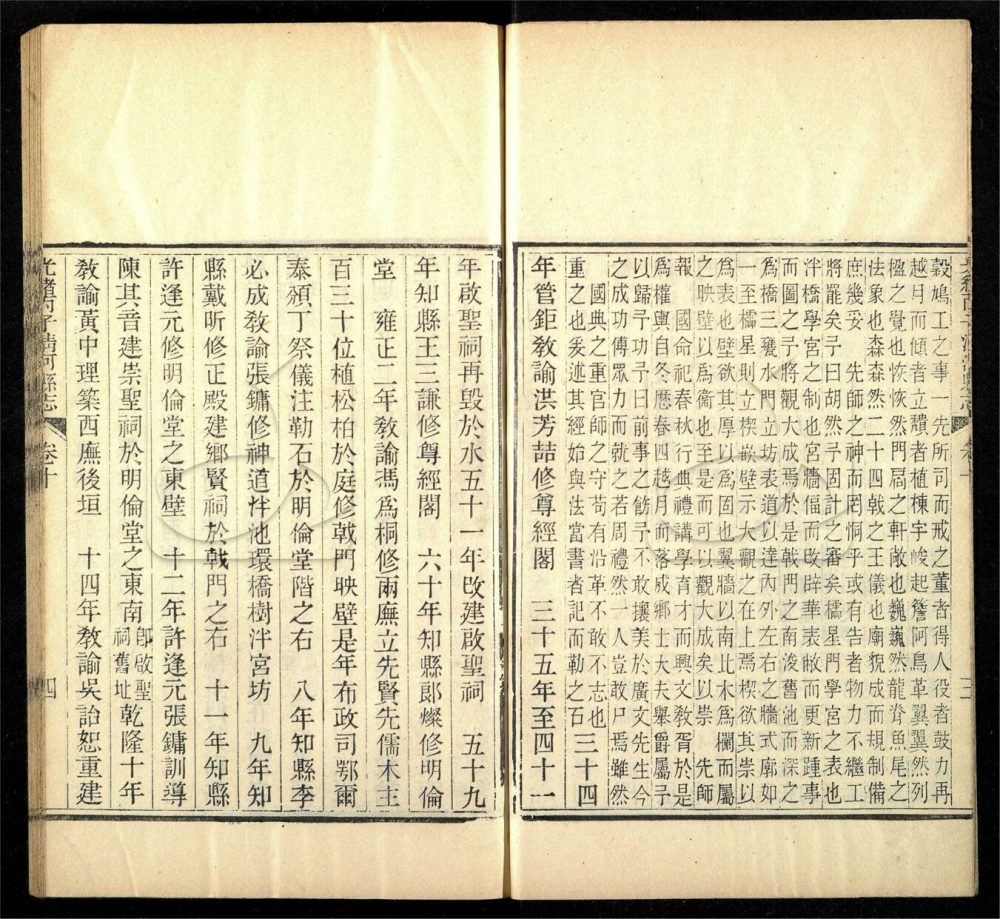 穀鳩工之事一先所司而戒之董者得人役者鼓力再
越月而傾者立頹者植棟宇峻起簷阿鳥革翼翼然列
楹之覺也恢恢然門扃之軒敞也巍巍然龍脊魚尾之
法象也森森然二十四戟之王儀也廟貌成而規制備
庶幾妥 先師之神而罔恫乎或有告者物力不繼工
將罷矣予曰胡然予固計之審矣櫺星門學宮之表也
泮橋學宮之制也宮牆偪而陂辟華表敝而更新踵事
而圖之予將觀大成焉於是戟門之南浚舊池而深之
為橋三甃水門立坊表道以達內外左右之牆式廓如
一至櫺星則立楔嵌壁示大觀之在上焉楔欲其崇以
為表也壁欲其厚以為固也翼牆以南比木為欄而屬
之映壁以為衞也至是而可以觀大成矣以崇 先師
報 國命祀春秋行典禮講學育才而興文敎胥於是
為權輿自冬歷春四越月而落成鄉士大夫舉爵屬予
以歸予功予曰前事之飭予不敢攘美於廣文先生今
之成功傳眾力而就之若周禮然一人豈敢尸焉雖然
國典之重官師之守苟有沿革不敢不志也
重之也妥述其經始與法當書者記而勒之石 三十四
年管鉅敎諭洪芳喆修尊經閣 三十五年至四十一
年啟聖祠再毀於水五十一年改建啟聖祠 五十九
年知縣王三謙修尊經閣 六十年知縣郎燦修明倫
堂 雍正二年敎諭馮為桐修兩廡立先賢先儒木主
百三十位植松柏於庭修戟門映壁是年布政司鄂爾
泰頒丁祭儀注勒石於明倫堂階之右 八年知縣李
必成敎諭張鏞修神道泮池環橋樹泮宮坊 九年知
縣戴昕修正殿建鄉賢祠於戟門之右 十一年知縣
許逢元修明倫堂之東壁 十二年許逢元張鏞訓導
陳其音建崇聖祠於明倫堂之東南卽啟聖祠舊址乾隆十年
敎諭黃中理築西廡後垣 十四年敎諭吳詒恕重建
光緒丙子清河縣志 卷十 四